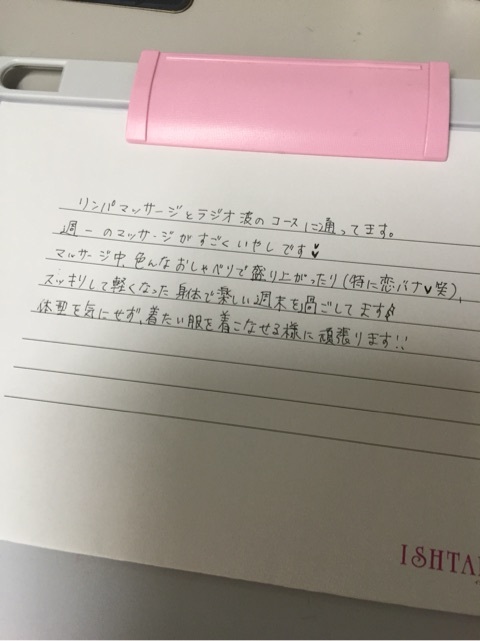 リンパマッサージとラジオ波のコースに通ってます。
週一のマッサージがすごくいやしです♥
マッサージ中色んなおしゃべりで盛り上がったり(特に恋バナ♥笑)、
スッキリして軽くなった身体で楽しい週末を過ごしてます♪
体型を気にせず、着たい服を着こなせる様に頑張ります!!
ISHTA